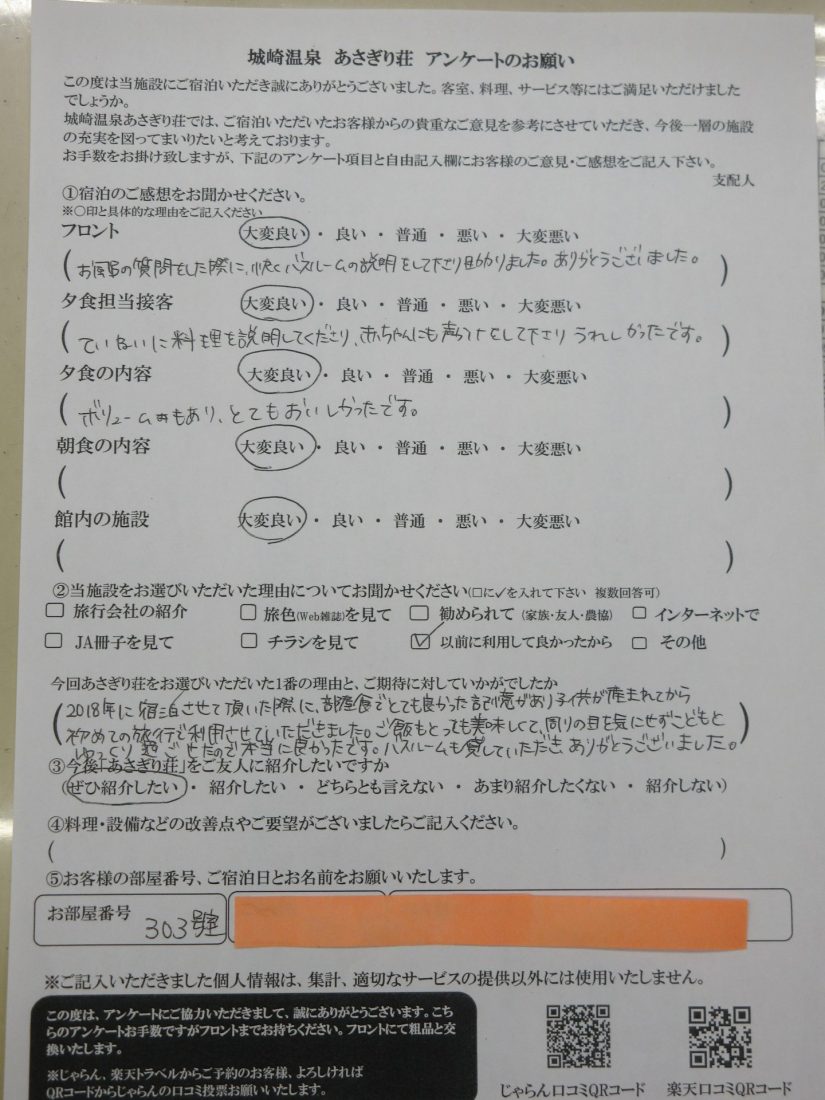 城崎温泉 あさぎり荘 アンケートのお願い
この度は当施設にご宿泊いただき誠にありがとうございました。客室、料理、サービス等にはご満足いただけました
でしょうか。
城崎温泉あさぎり荘では、ご宿泊いただいたお客様からの貴重なご意見を参考にさせていただき、今後一層の施設
の充実を図ってまいりたいと考えております。
お手数をお掛け致しますが、下記のアンケート項目と自由記入欄にお客様のご意見・ご感想をご記入下さい。
支配人
①宿泊のご感想をお聞かせください。
※○印と具体的な理由をご記入ください
フロント 大変良い ・ 良い ・ 普通 ・ 悪い ・ 大変悪い
(お風呂の質問をした際に、快くバスルームの説明をして下さり助かりました。ありがとうございました。)
夕食担当接客 大変良い ・ 良い ・ 普通 ・ 悪い ・ 大変悪い
(ていねいに料理も説明してくださり、赤ちゃんにも声かけをして下さりうれしかったです。)
夕食の内容 大変良い ・ 良い ・ 普通 ・ 悪い ・ 大変悪い
(ボリュームもあり、とてもおいしかったです。)
朝食の内容 大変良い ・ 良い ・ 普通 ・ 悪い ・ 大変悪い
( )
館内の施設 大変良い ・ 良い ・ 普通 ・ 悪い ・ 大変悪い
( )
②当施設をお選びいただいた理由についてお聞かせください(□に✓を入れて下さい 複数回答可)
□ 旅行会社の紹介 □ 旅色(Web雑誌)を見て □ 勧められて (家族・友人・農協) □ インターネットで
□ JA冊子を見て □ チラシを見て ☑ 以前に利用して良かったから □ その他
今回あさぎり荘をお選びいただいた1番の理由と、ご期待に対していかがでしたか
(2018年に宿泊させて頂いた際に、部屋食でとても良かった記憶があり子供が産まれてから
初めての旅行で利用させていただきました。ご飯もとっても美味しくて、周りの目を気にせずこどもと
ゆっくり過ごせたので本当に良かったです。バスルームも貸していただきありがとうございました。)
③今後「あさぎり荘」をご友人に紹介したいですか
(ぜひ紹介したい ・ 紹介したい ・ どちらとも言えない ・ あまり紹介したくない ・ 紹介しない)
④料理・設備などの改善点やご要望がございましたらご記入ください。
( )
⑤お客様の部屋番号、ご宿泊日とお名前をお願いいたします。
お部屋番号 303号室
※ご記入いただきました個人情報は、集計、適切なサービスの提供以外には使用いたしません。
この度は、アンケートにご協力いただきまして、誠にありがとうございます。こち
らのアンケートお手数ですがフロントまでお持ちください。フロントにて粗品と交
換いたします。
※じゃらん、楽天トラベルからご予約のお客様、よろしければ
QRコードからじゃらんの口コミ投票お願いいたします。
じゃらん口コミQRコード 楽天口コミQRコード